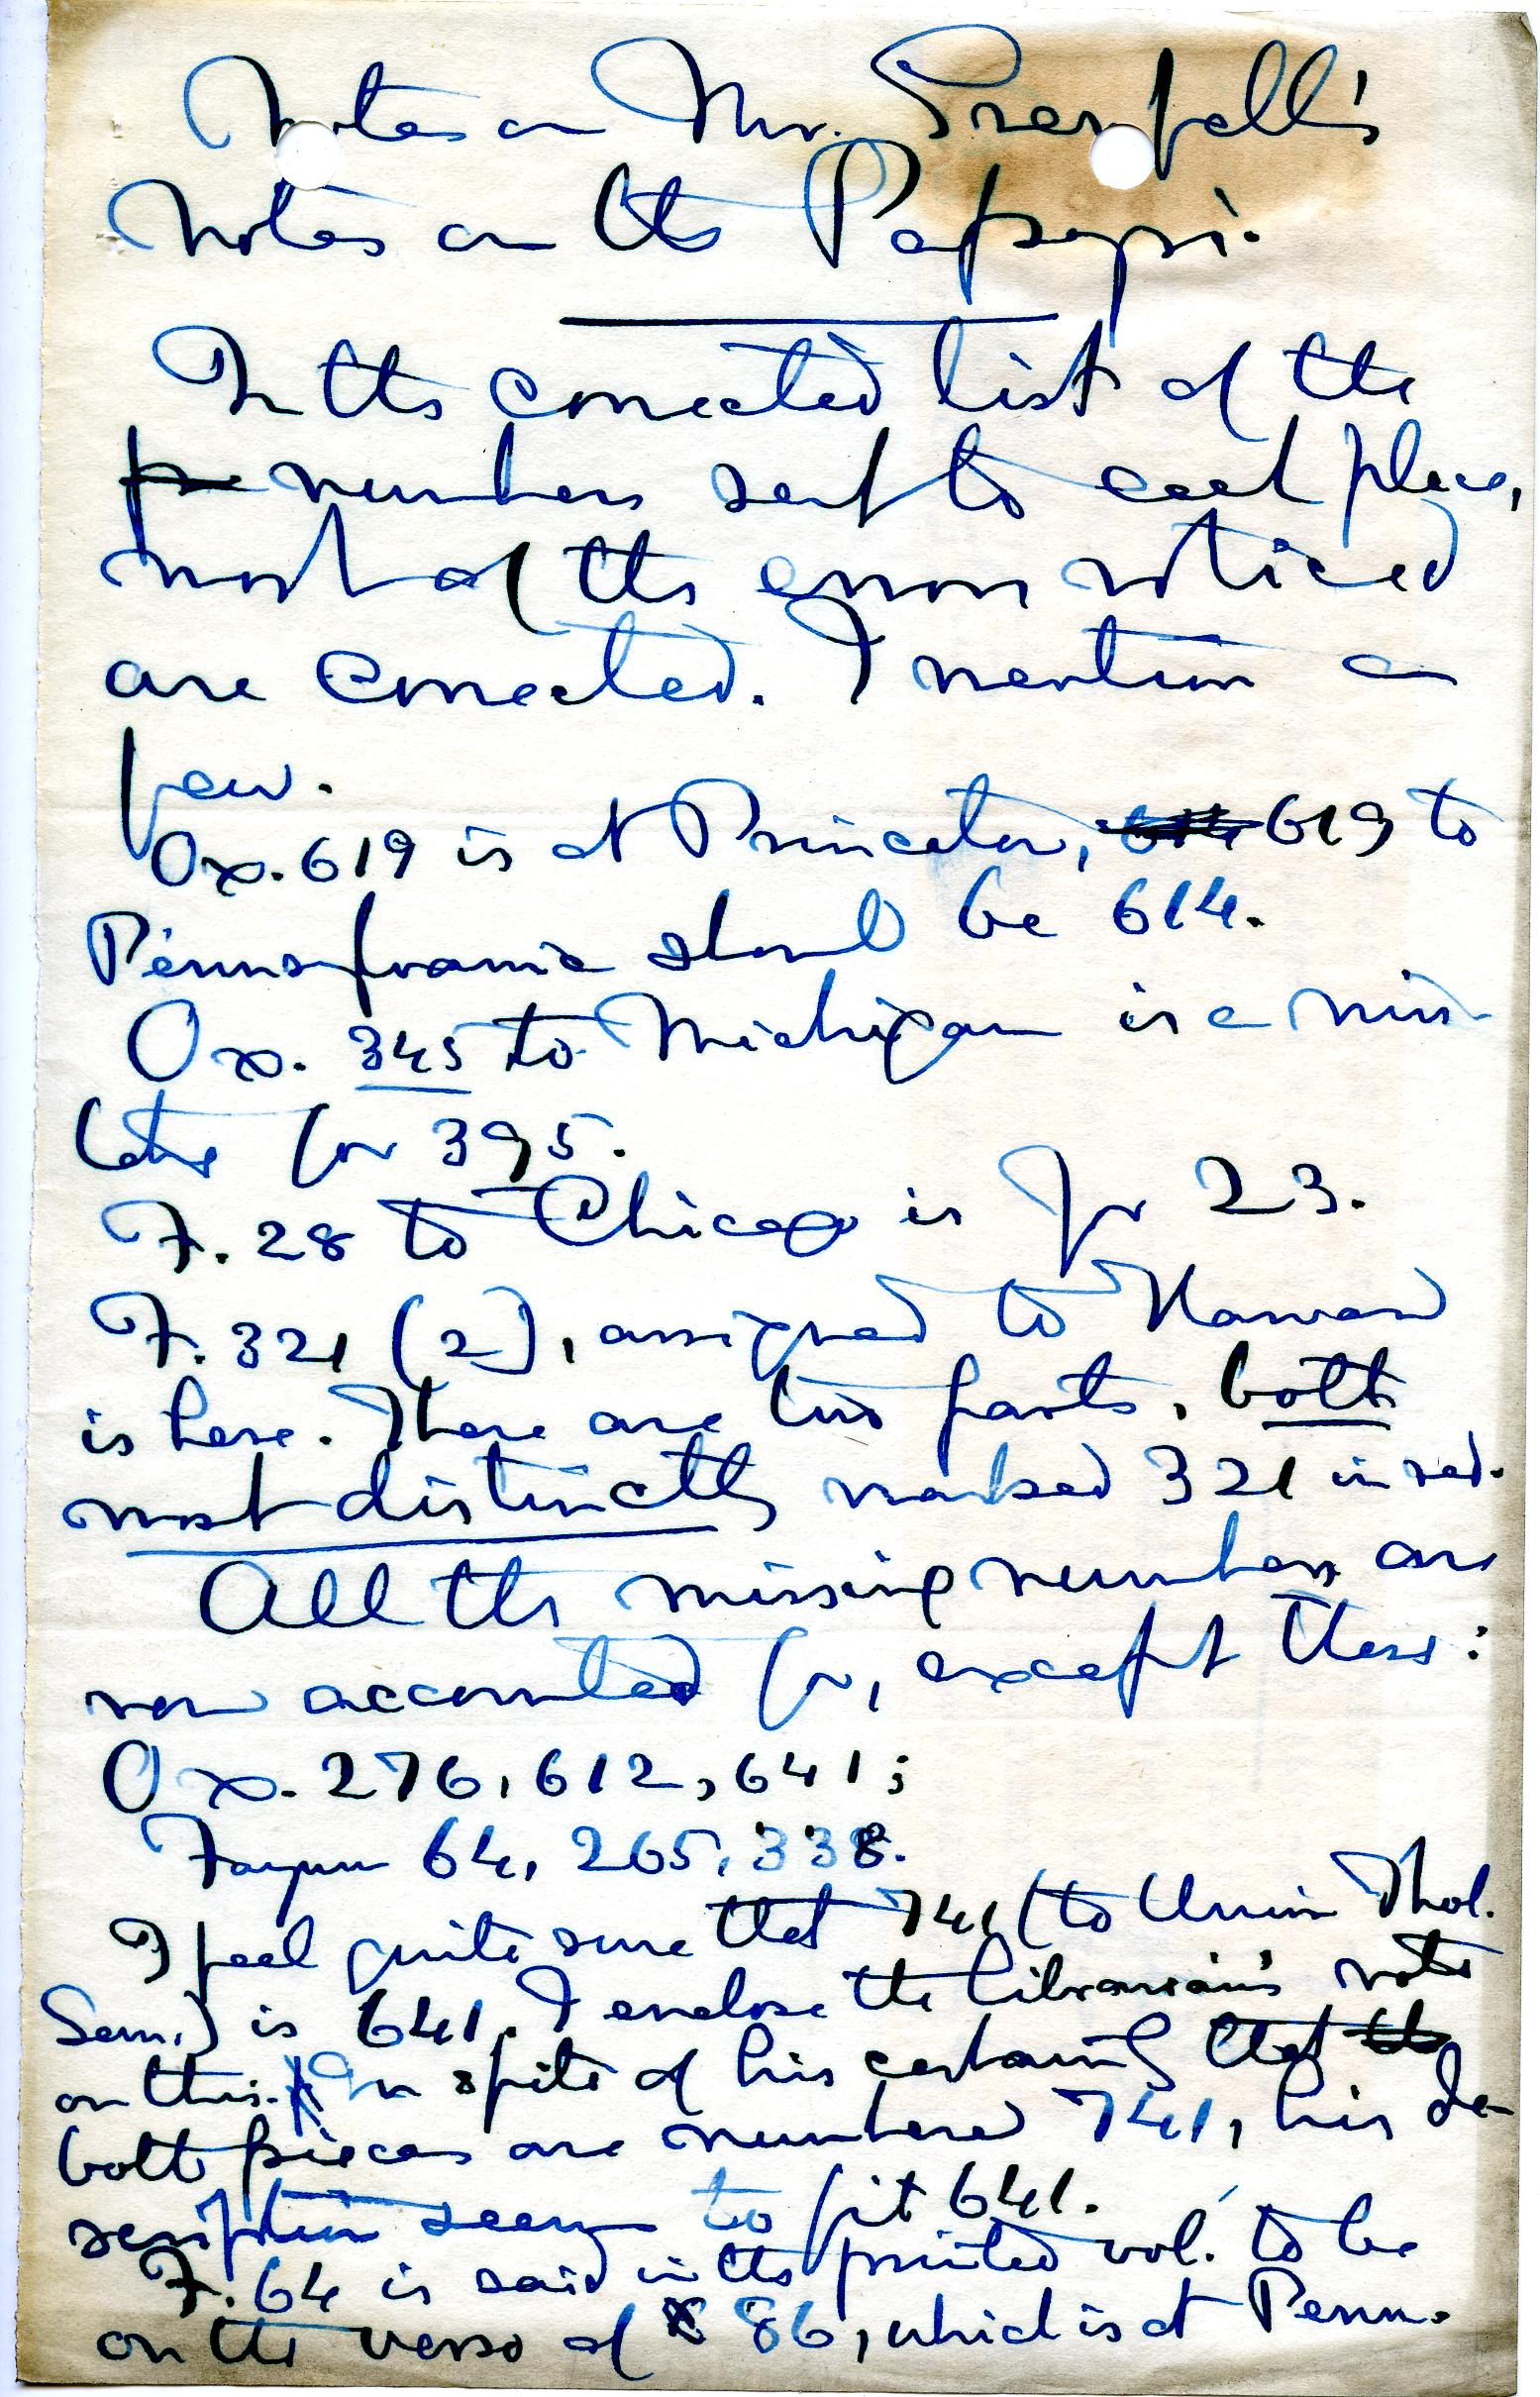 Notes on Mr. Grenfell's
Notes on the Papyri.
In the corrected list of the
numbers sent to each place,
most of the errors noticed
are corrected. I mention a
few.
Ox. 619 is at Princeton, 619 to
Pennsylvania should be 614.
Ox. 345 to Michigan is a mis-
take for 395.
F. 28 to Chicago is for 23.
F. 321 (2), assigned to Harvard
is here. There are two parts, both
most distinctly marked 321 in red.
All the missing numbers are
now accounted for, except these:
Ox. 276, 612, 641;
Fayum 64, 265, 338.
I feel quite sure that 741 (to Union Theol.
Sem.) is 641. I enclose the librarian's note
on this. In spite of his certainty that
both pieces are numbered 741, his de-
scription seems to fit 641.
F. 64 is said in the printed vol. to be
on the verso of 86, which is at Penn.